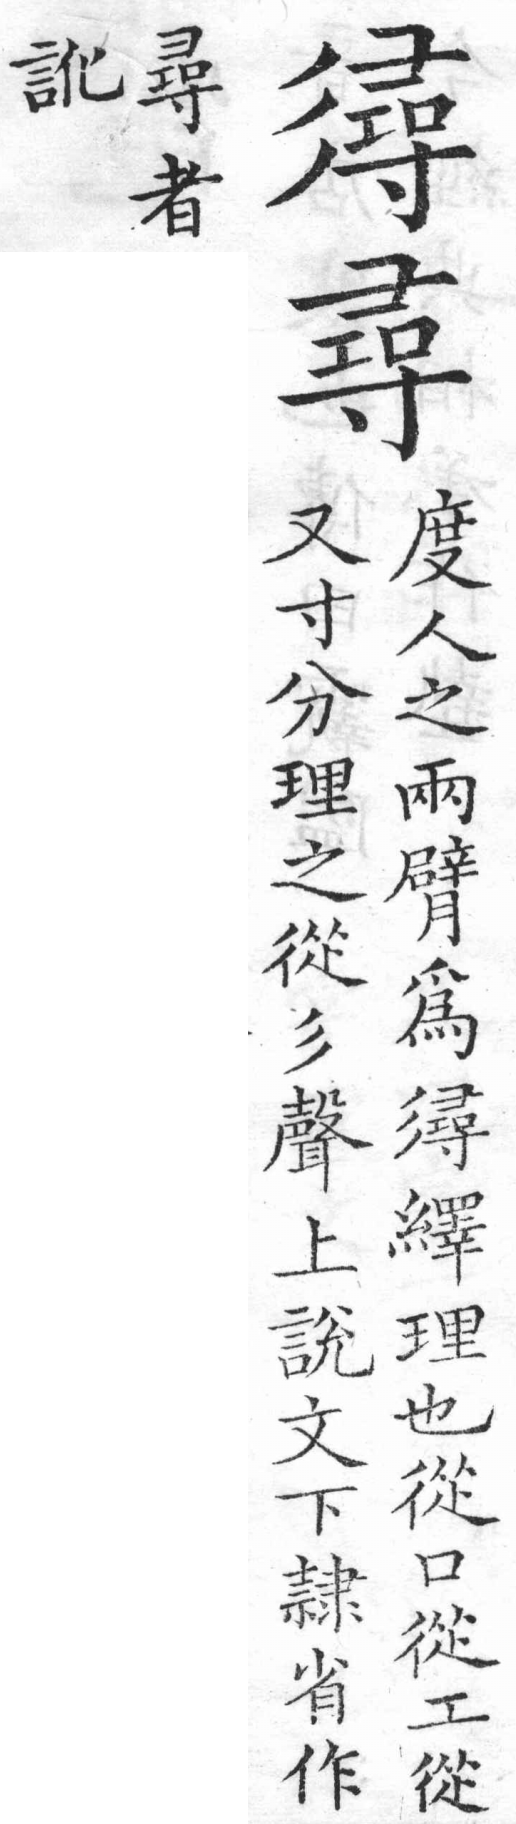 𢒫尋
度人之兩臂爲𢒫繹理也從口從工從
又寸分理之從彡聲上說文下隸省作
尋者
訛